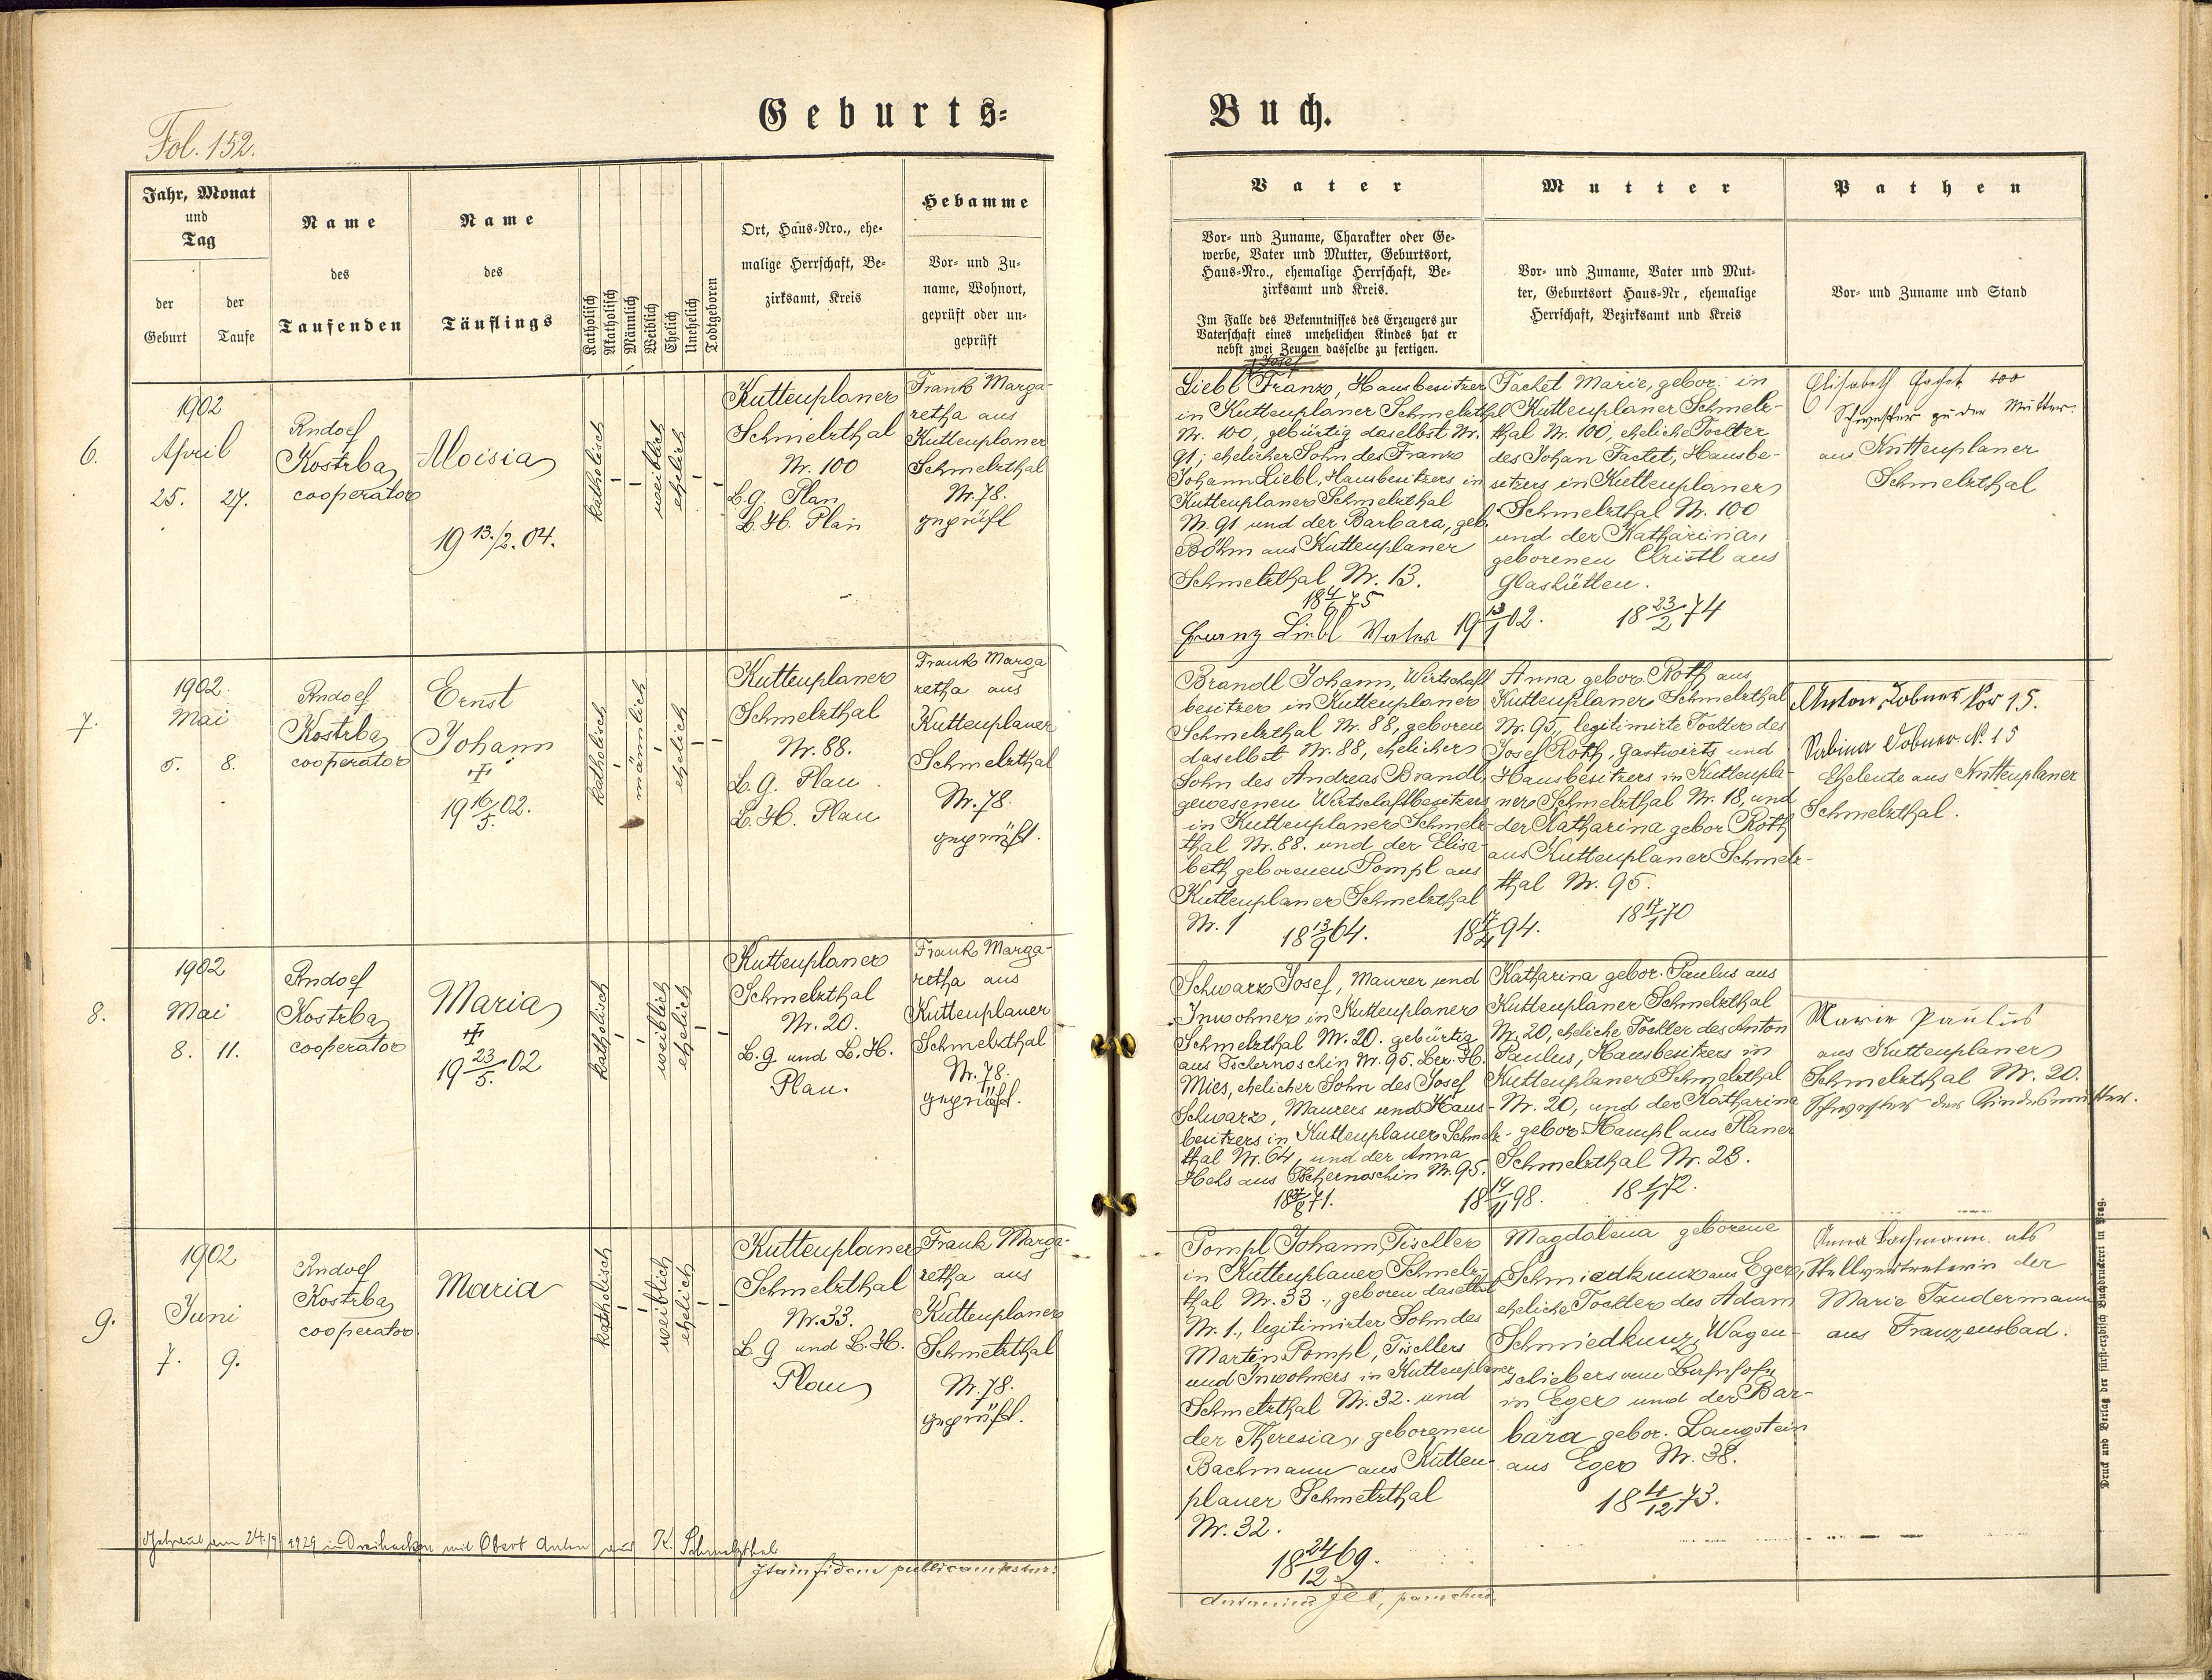 Geburts-
Buch.
Fol. 152.
Jahr, Monat
und
Tag
der
Geburt
der
Taufe
Name
des
Taufenden
Name
des
Täuflings
Katholisch
Akatholisch
Männlich
Weiblich
Ehelich
Unehelich
Todtgeboren
Ort, Haus-Nro., ehe-
malige Herrschaft, Be-
zirksamt, Kreis
Hebamme
Vor- und Zu-
name, Wohnort,
geprüft oder un-
geprüft
Vater
Vor- und Zuname, Charakter oder Ge-
werbe, Vater und Mutter, Geburtsort,
Haus-Nro., ehemalige Herrschaft, Be-
zirksamt und Kreis.
Im Falle des Bekenntnisses des Erzeugers zur
Vaterschaft eines unehelichen Kindes hat er
nebst zwei Zeugen dasselbe zu fertigen.
Mutter
Vor- und Zuname, Vater und Mut-
ter, Geburtsort Haus-Nr, ehemalige
Herrschaft, Bezirksamt und Kreis
Pathen
Vor- und Zuname und Stand
6.
1902
April
25. 27.
Rudolf
Kostrba
cooperator
Aloisia
19 13./2. 04.
katholisch
weiblich
ehelich
Kuttenplaner
Schmelzthal
Nr. 100
B.G. Plan
B.H. Plan
Frank Marga-
retha aus
Kuttenplaner
Schmelzthal
Nr. 78.
geprüft
Josef
Liebl Franz, Hausbesitzer
in Kuttenplaner Schmelzthal
Nr. 100, gebürtig daselbst Nr.
91, ehelicher Sohn des Franz
Johann Liebl, Hausbesitzers in
Kuttenplaner Schmelzthal
Nr. 91 und der Barbara, geb.
Böhm aus Kuttenplaner
Schmelzthal Nr. 13.
18 4/6 75
Franz Liebl Vater 19 13/1 02.
Tachet Marie, gebor. in
Kuttenplaner Schmelz-
thal Nr. 100, eheliche Tochter
des Johan Tachet, Hausbe-
sitzers in Kuttenplaner
Schmelzthal Nr. 100
und der Katharina,
geborenen Christl aus
Glashütten.
18 23/2 74
Elisabeth Tachet 100
Schwester zu der Mutter.
aus Kuttenplaner
Schmelzthal
7.
1902.
Mai
5. 8.
Rudolf
Kostrba
cooperator
Ernst
Johann
19 16/5. 02.
katholisch
männlich
ehelich
Kuttenplaner
Schmelzthal
Nr. 88.
B.G. Plan
B.H. Plan
Frank Marga
retha aus
Kuttenplaner
Schmelzthal
Nr. 78.
geprüft.
Brandl Johann, Wirtschaft
besitzer in Kuttenplaner
Schmelzthal Nr. 88, geboren
daselbst Nr. 88, ehelicher
Sohn des Andreas Brandl,
gewesenen Wirtschaftbesitzers
in Kuttenplaner Schmelz-
thal Nr. 88. und der Elisa-
beth geborenen Pompl aus
Kuttenplaner Schmelzthal
Nr. 1
18 13/9 64.
Anna gebor. Roth aus
Kuttenplaner Schmelzthal
Nr. 95, legitimirte Tochter des
Josef Roth, Gastwirts und
Hausbesitzers in Kuttenpla-
ner Schmelzthal Nr. 18, und
der Katharina gebor Roth
aus Kuttenplaner Schmelz-
thal Nr. 95.
18 17/4 94.
18 17/1 70
Anton Dobner No 15.
Sabina Dobner N. 15
Eheleute aus Kuttenplaner
Schmelzthal.
8.
1902
Mai
8. 11.
Rudolf
Kostrba
cooperator
Maria
19 23/5. 02
katholisch
weiblich
ehelich
Kuttenplaner
Schmelzthal
Nr. 20.
B.G. und B.H.
Plan.
Frank Marga-
retha aus
Kuttenplaner
Schmelzthal
Nr. 78.
geprüft.
Schwarz Josef, Maurer und
Inwohner in Kuttenplaner
Schmelzthal Nr. 20. gebürtig
aus Tschernoschin Nr. 95. Bez. H.
Mies, ehelicher Sohn des Josef
Schwarz, Maurers und Haus-
besitzers in Kuttenplaner Schmelz-
thal Nr. 64, und der Anna
Hels aus Tschernoschin Nr. 95.
Katharina gebor. Paulus aus
Kuttenplaner Schmelzthal
Nr. 20, eheliche Tochter des Anton
Paulus, Hausbesitzers in
Kuttenplaner Schmelzthal
Nr. 20, und der Katharina
gebor. Hampl aus Planer
Schmelzthal Nr. 23.
18 14/11 98.
18 1/1 72.
Marie Paulus
aus Kuttenplaner
Schmelzthal Nr. 20.
Schwester der Kindesmutter.
9.
1902
Juni
7. 9.
Rudolf
Kostrba
cooperator
Maria
katholisch
weiblich
ehelich
Kuttenplaner
Schmelzthal
Nr. 33.
B.G und B.H.
Plan
Frank Marga-
retha aus
Kuttenplaner
Schmelzthal
Nr. 78.
geprüft.
Pompl Johann, Tischler
in Kuttenplaner Schmelz-
thal Nr. 33., geboren daselbst
Nr. 1., legitimirter Sohn des
Martin Pompl, Tischlers
und Inwohners in Kuttenplaner
Schmelzthal Nr. 32. und
der Theresia, geborenen
Bachmann aus Kutten-
planer Schmelzthal
Nr. 32.
18 24/12 69.
Magdalena geborene
Schmiedkunz aus Eger,
eheliche Tochter des Adam
Schmiedkunz, Wagen-
schiebers vom Bahnhofe
in Eger und der Bar-
bara gebor. Langstein
aus Eger Nr. 38.
18 4/12 73.
Anna Bachmann als
Stellvertreterin der
Marie Taudermann
aus Franzensbad.
Getraut am 24./9 1929 in Dreihacken mit Obert Anton aus K. Schmelzthal
Ita in fidem publicam testor:
Druck und Verlag der fürst-erzbisch Buchdruckerei in Prag.